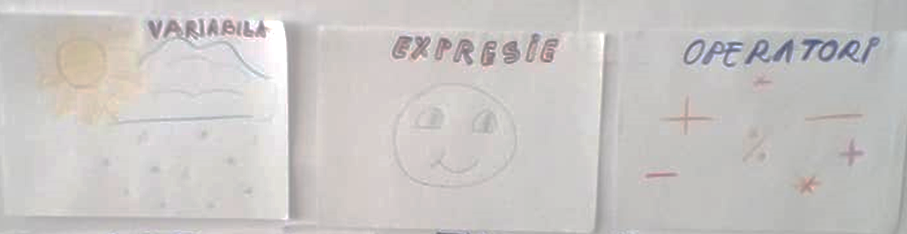 VARIABILA
EXPRESIE
OPERATORI
*
+ —
% +
— *